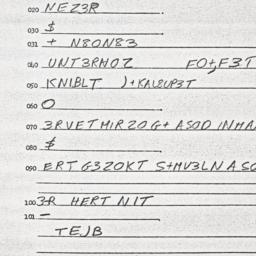 020 NEZ3R
030 $
031 + N8ON83
040 UNT3RHOZ FO+F3T
050 KNIBLT )+KAL8UP3T
060 O
070 3RVETHIRZOG+ASOD INHA
080 $
090 ERTG3ZOKT S+MV3LNASO
100 3R HERT NIT
101 –
TEJB